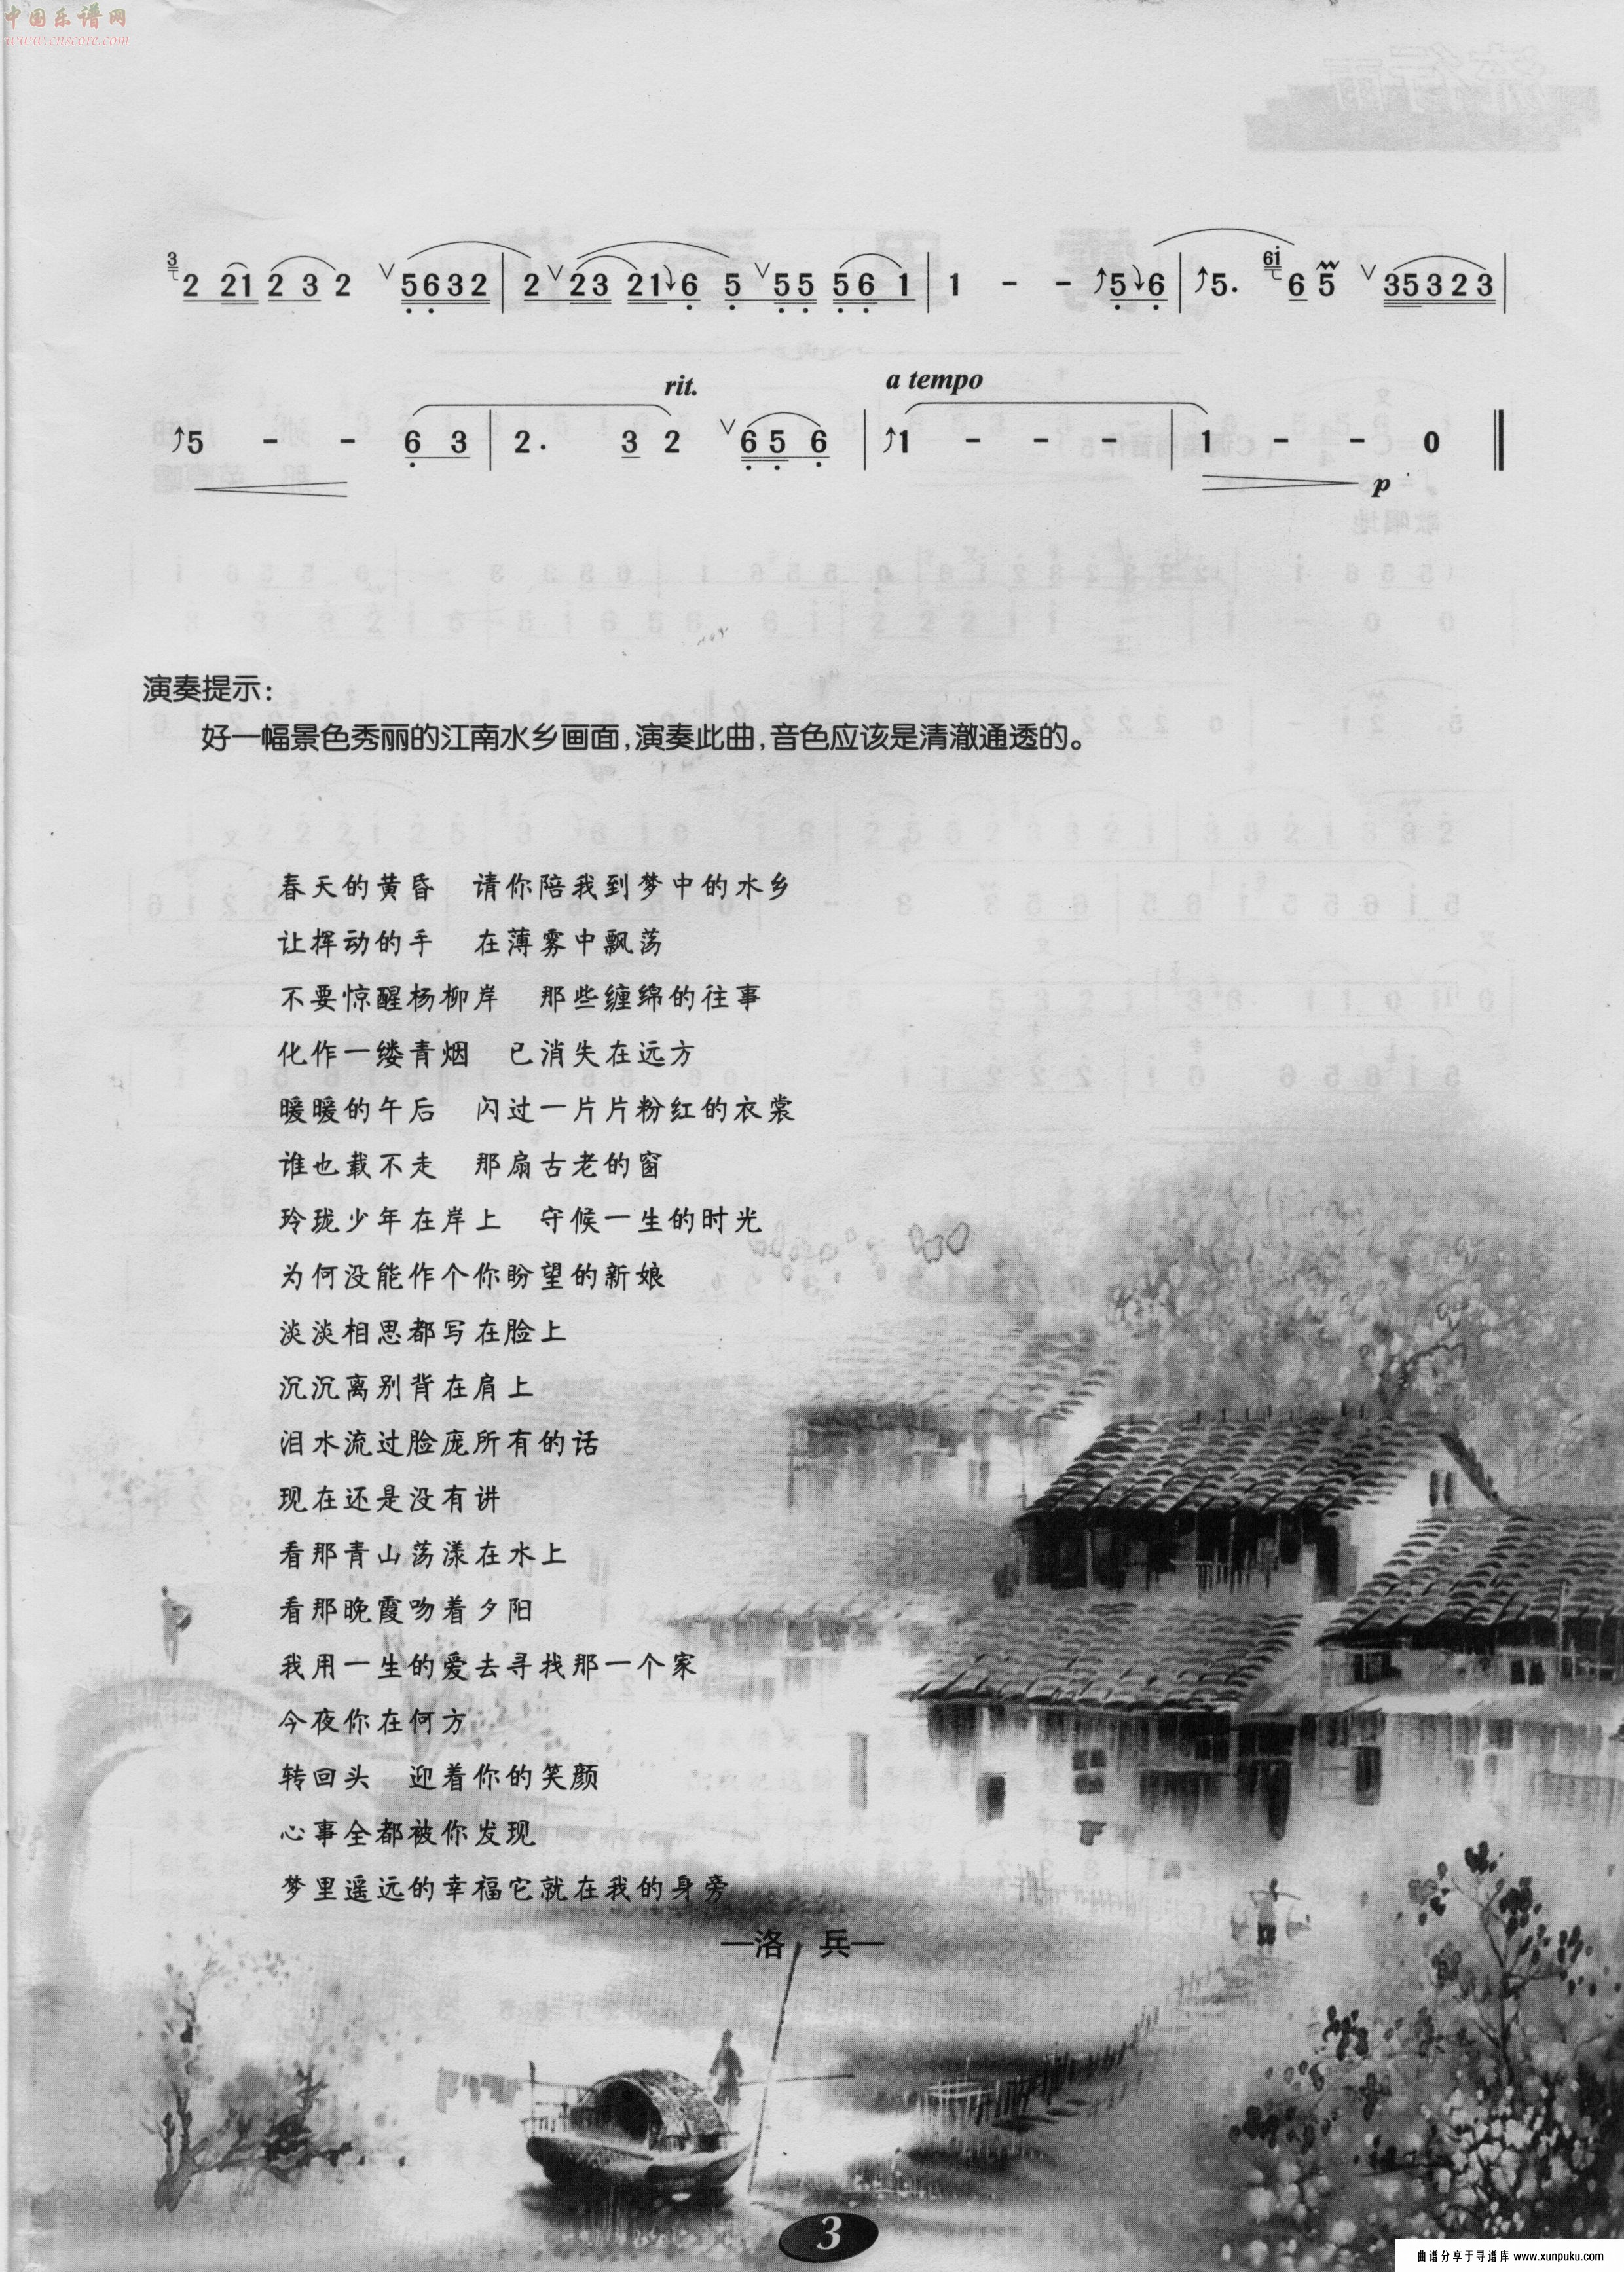 中国乐谱网
www.cnscore.com
3 2 21 2 3 2 V 5632 | 2 V 23 21 6 5 V 55 56 1 | 1 - - 5 6 | 5. 6i 6 5 V 35323 |
rit. a tempo
5 - - 6 3 | 2. 3 2 V 65 6 | 1 - - - | 1 - - 0
p
演奏提示:
好一幅景色秀丽的江南水乡画面,演奏此曲,音色应该是清澈通透的。
春天的黄昏 请你陪我到梦中的水乡
让挥动的手 在薄雾中飘荡
不要惊醒杨柳岸 那些缠绵的往事
化作一缕青烟 已消失在远方
暖暖的午后 闪过一片片粉红的衣裳
谁也载不走 那扇古老的窗
玲珑少年在岸上 守候一生的时光
为何没能作个你盼望的新娘
淡淡相思都写在脸上
沉沉离别背在肩上
泪水流过脸庞所有的话
现在还是没有讲
看那青山荡漾在水上
看那晚霞吻着夕阳
我用一生的爱去寻找那一个家
今夜你在何方
转回头 迎着你的笑颜
心事全都被你发现
梦里遥远的幸福它就在我的身旁
—洛 兵—
3
曲谱分享于寻谱库 www.xunpuku.com